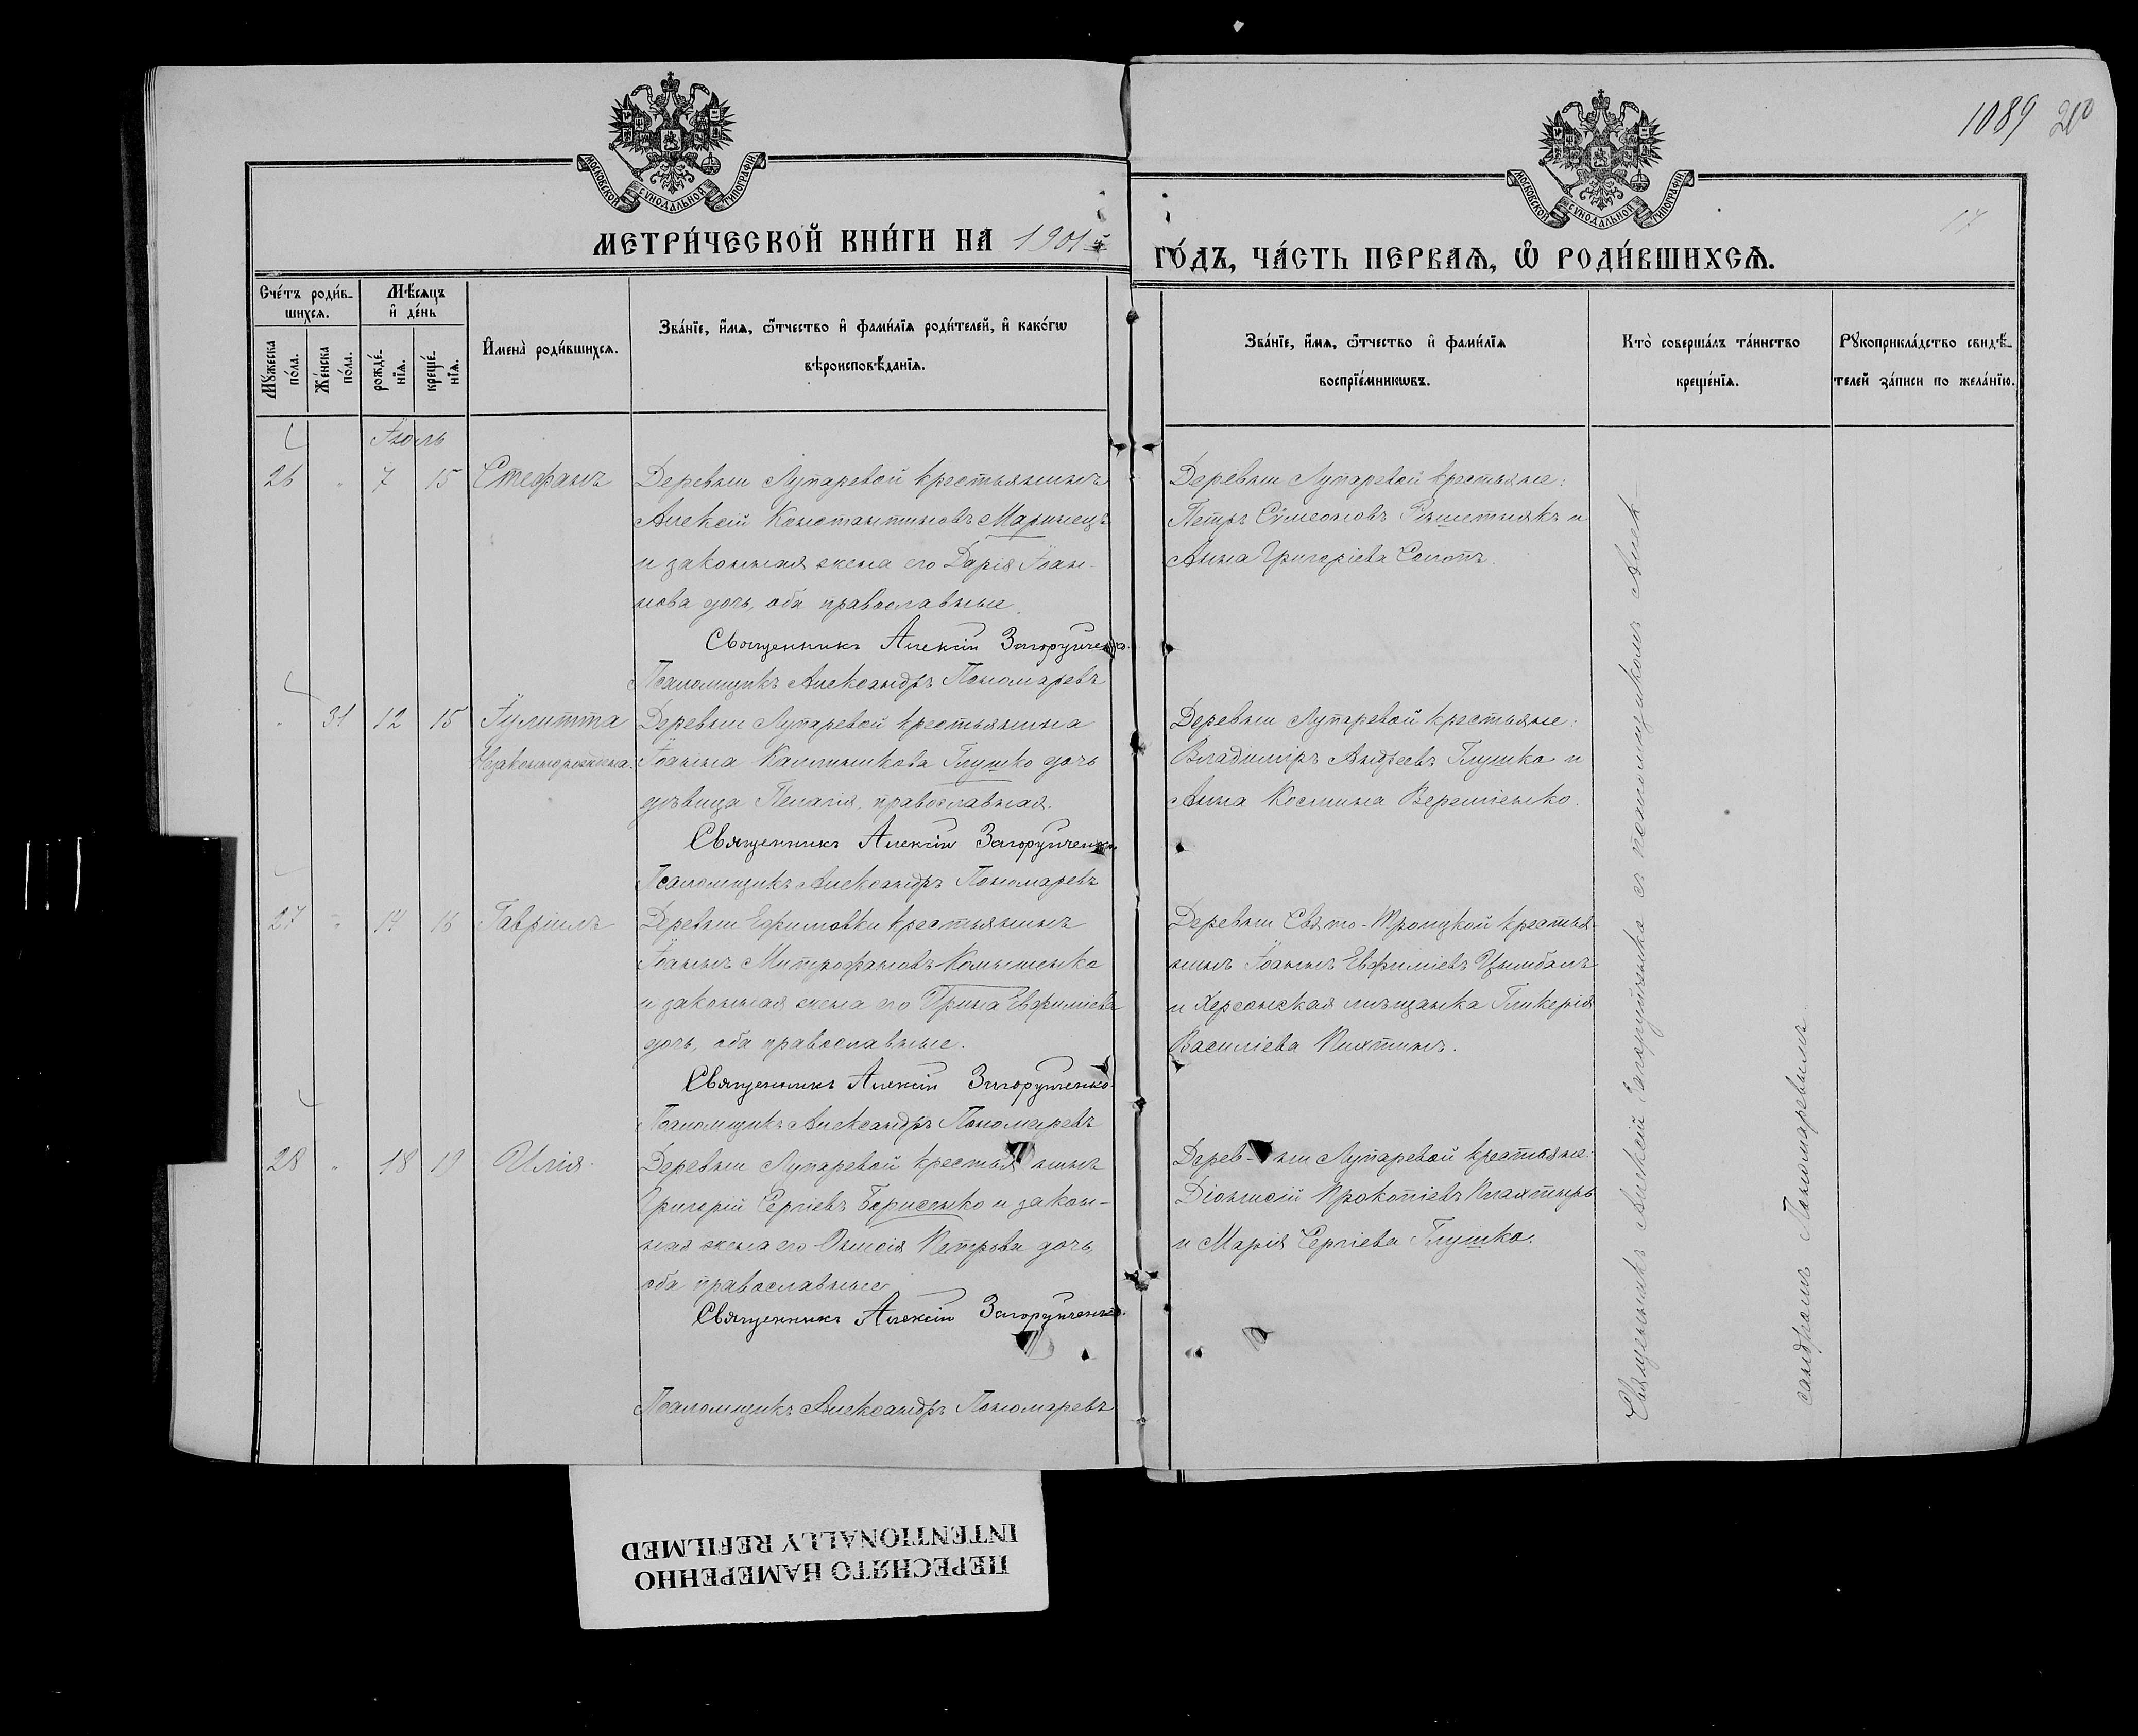 1089 200
17
МОСКОВСКОЙ СѴНОДАЛЬНОЙ ТИПОГРАФІИ
МОСКОВСКОЙ СѴНОДАЛЬНОЙ ТИПОГРАФІИ
МЕТРИ́ЧЕСКОЙ КНИ́ГИ НА 1901й
ГО́ДЪ, ЧА́СТЬ ПЕРВАѦ, Ѡ҆ РОДИ́ВШИХСѦ.
Сче́тъ роди́в-
шихся.
Мѣ́сяцъ
и҆ де́нь
Мꙋ́жеска по́ла.
Же́нска по́ла.
рожде́-нїя.
креще́-нїя.
И҆мена̀ роди́вшихся.
Зва́нїе, и҆́мя, ѻ҆́тчество и҆ фами́лїя роди́телей, и҆ како́гѡ
вѣроисповѣ́данїя.
Зва́нїе, и҆́мя, ѻ҆́тчество и҆ фами́лїя
воспрїе́мникѡвъ.
Кто̀ соверша́лъ та́инство
креще́нїя.
Рꙋкоприкла́дство свидѣ́-
телей за́писи по жела́нїю.
Іюль
26 " 7 15 Стефанъ
Деревни Лупаревой крестьянинъ
Алексій Константиновъ Маринецъ
и законная жена его Дарія Іоан-
нова дочь, оба православные.
Священникъ Алексій Загоруйченко.
Псаломщикъ Александръ Пономаревъ
Деревни Лупаревой крестьяне:
Петръ Сѵмеоновъ Рѣшетнякъ и
Анна Григоріева Сопотъ.
" 31 12 15 Іулитта
Незаконнорожденная.
Деревни Лупаревой крестьянина
Іоанна Каллиникова Глушко дочь
дѣвица Пелагія, православная.
Священникъ Алексій Загоруйченко.
Псаломщикъ Александръ Пономаревъ
Деревни Лупаревой крестьяне:
Владиміръ Андреевъ Глушко и
Анна Космина Веремієнко.
27 " 14 16 Гавріилъ
Деревни Ефимовки крестьянинъ
Іоаннъ Митрофановъ Комышенко
и законная жена его Ирина Евфиміева
дочь, оба православные.
Священникъ Алексій Загоруйченко.
Псаломщикъ Александръ Пономаревъ
Деревни Свято-Троицкой крестья-
нинъ Іоаннъ Евфиміевъ Цымбалъ
и Херсонская мѣщанка Гликерія
Василіева
28 " 18 19 Илія.
Деревни Лупаревой крестьянинъ
Григорій Сергіевъ Борисенко и закон-
ная жена его Онисія Петрова дочь,
оба православные
Священникъ Алексій Загоруйченко.
Псаломщикъ Александръ Пономаревъ
Дерев-ни Лупаревой крестьяне:
Діонисій Прокопіевъ Плахтырь
и Марія Сергіева Глушко.
Священникъ Алексій Загоруйченко съ псаломщикомъ Алек-
сандромъ Пономаревымъ.
ПЕРЕСНЯТО НАМЕРЕННО
INTENTIONALLY REFILMED